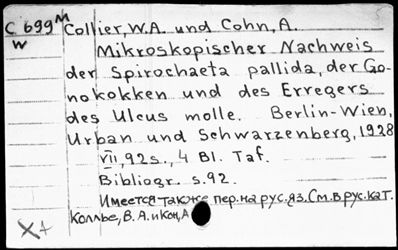 C 699 M Collier, W.A. und Cohn, A.
W Mikroskopischer Nachweis
der Spirochaeta pallida, der Go-
nokokken und des Erregers
des Ulcus molle. Berlin-Wien,
Urban und Schwarzenberg, 1928
VII, 92s., 4 Bl. Taf.
Bibliogr. s. 92.
Имеется также пер. на рус. яз. См. в рус. кат.
Колльe, В. А. и Кон, А
X+